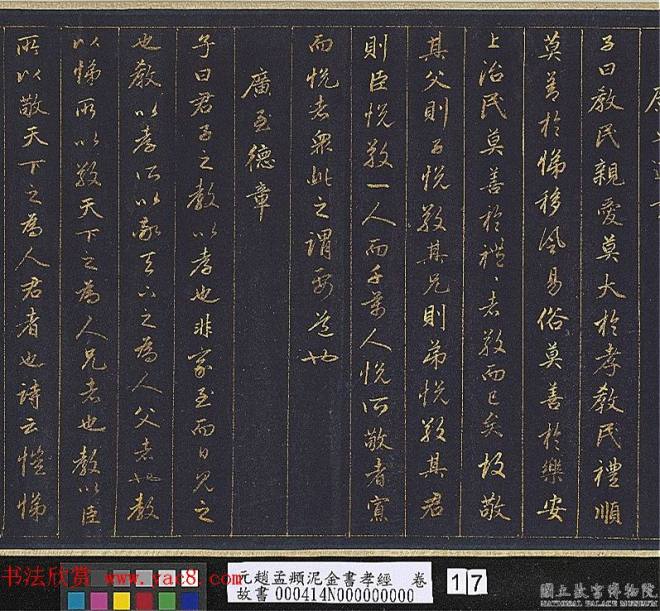 子曰教民親愛莫大於孝教民禮順
莫善於悌移風易俗莫善於樂安
上治民莫善於禮〻者敬而已矣故敬
其父則子悅敬其兄則弟悅敬其君
則臣悅敬一人而千萬人悅所敬者寡
而悅者衆此之謂要道也
廣至德章
子曰君子之教以孝也非家至而日見之
也教以孝所以敬天下之為人父者也教
以悌所以敬天下之為人兄者也教以臣
所以敬天下之為人君者也詩云愷悌
书法欣赏
www.yac8.com
元趙孟頫泥金書孝經 卷
故書 000414N000000000
17
國立故宮博物院
NATIONAL PALACE MUSEUM